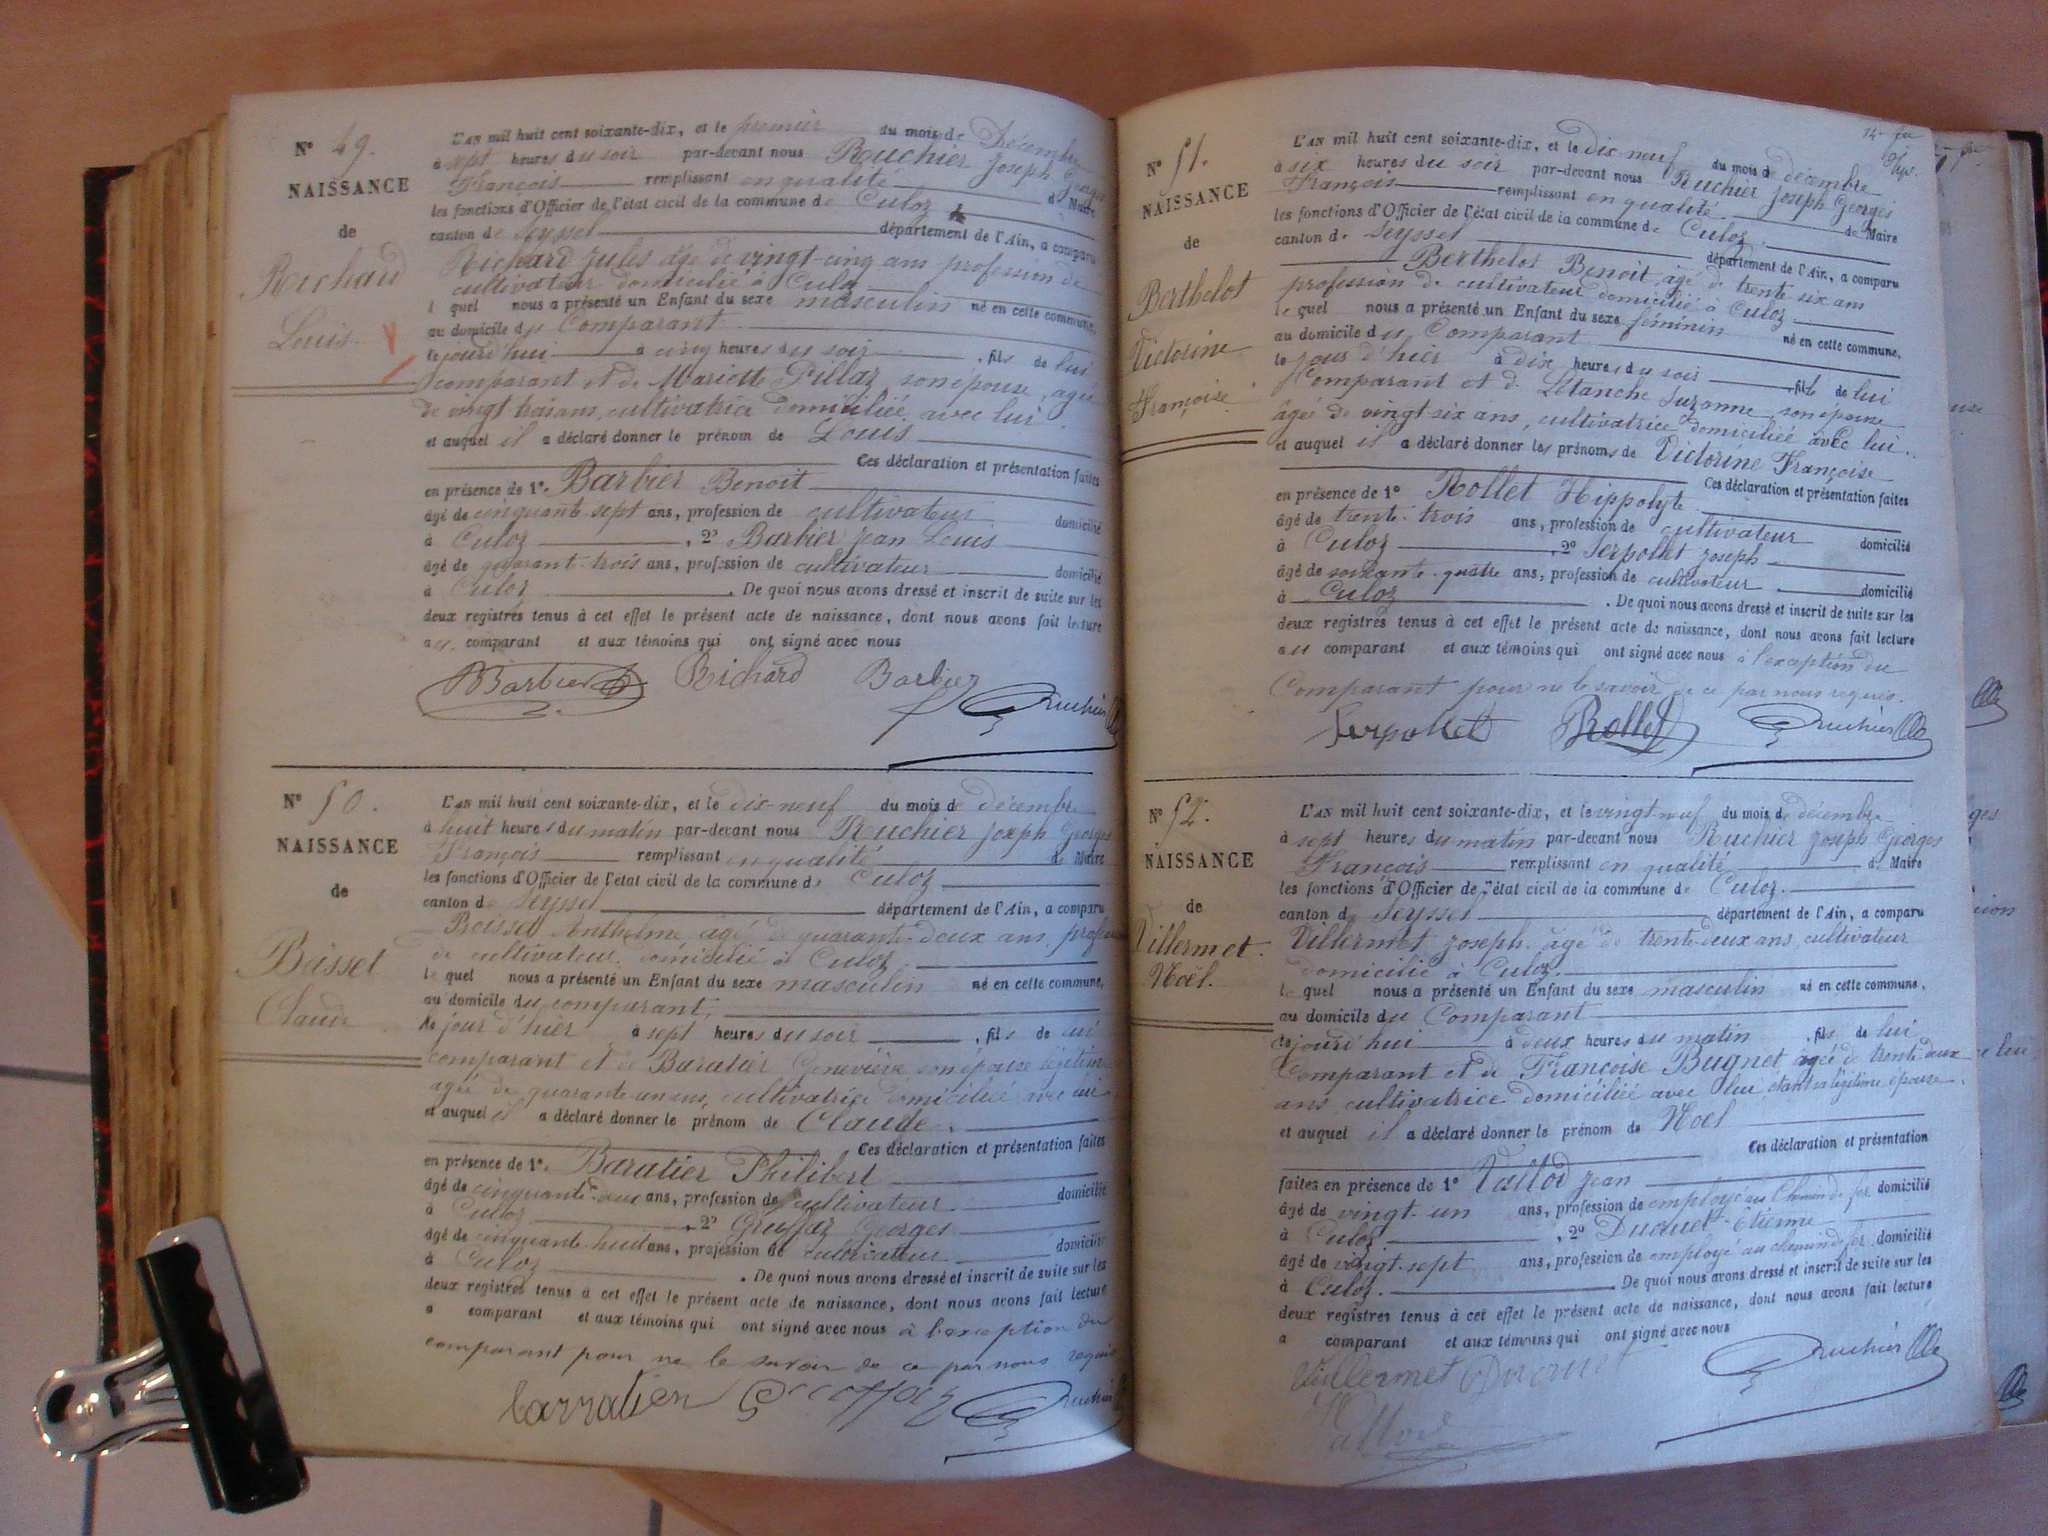 N° 49.
NAISSANCE
de
Richard
Louis
L'AN mil huit cent soixante-dix, et le premier du mois de Décembre
à sept heures du soir par-devant nous Ruchier Joseph Georges
François remplissant en qualité de Maire
les fonctions d'Officier de l'état civil de la commune de Culoz
canton de Seyssel département de l'Ain, a comparu
Richard Jules âgé de vingt-cinq ans profession de
cultivateur domicilié à Culoz
lequel nous a présenté un Enfant du sexe masculin né en cette commune,
au domicile du Comparant
le jourd'hui à cinq heures du soir , fils de lui
comparant et de Mariette Pillaz son épouse, agée
de vingt trois ans, cultivatrice domiciliée avec lui.
et auquel il a déclaré donner le prénom de Louis
Ces déclaration et présentation faites
en présence de 1°. Barbier Benoit
âgé de cinquante-sept ans, profession de cultivateur domicilié
à Culoz , 2° Barbier Jean Louis
âgé de quarant-trois ans, profession de cultivateur domicilié
à Culoz . De quoi nous avons dressé et inscrit de suite sur les
deux registres tenus à cet effet le présent acte de naissance, dont nous avons fait lecture
au comparant et aux témoins qui ont signé avec nous
Barbier Richard Barbier Ruchier
N° 50.
NAISSANCE
de
Basset
Claude
L'AN mil huit cent soixante-dix, et le dix-neuf du mois de décembre
à huit heures du matin par-devant nous Ruchier Joseph Georges
François remplissant en qualité de Maire
les fonctions d'Officier de l'état civil de la commune de Culoz
canton de Seyssel département de l'Ain, a comparu
Anthelme âgé de quarante-deux ans, profession
de cultivateur domicilié à Culoz
lequel nous a présenté un Enfant du sexe masculin né en cette commune,
au domicile du comparant,
le jour d'hier à sept heures du soir , fils de lui
comparant et de Baratier Geneviève son épouse légitime
agée de quarante un ans, cultivatrice domiciliée avec lui
et auquel il a déclaré donner le prénom de Claude.
Ces déclaration et présentation faites
en présence de 1°. Baratier Philibert
âgé de cinquante-deux ans, profession de cultivateur domicilié
à Culoz , 2° Georges
âgé de cinquante-huit ans, profession de cultivateur domicilié
à Culoz . De quoi nous avons dressé et inscrit de suite sur les
deux registres tenus à cet effet le présent acte de naissance, dont nous avons fait lecture
a comparant et aux témoins qui ont signé avec nous à l'exception du
comparant pour ne le savoir de ce par nous requis
Ruchier
N° 51.
NAISSANCE
de
Berthelot
Victorine
Françoise
L'AN mil huit cent soixante-dix, et le dix neuf du mois de décembre
à six heures du soir par-devant nous Ruchier Joseph Georges
François remplissant en qualité de Maire
les fonctions d'Officier de l'état civil de la commune de Culoz
canton de Seyssel département de l'Ain, a comparu
Berthelot Benoit âgé de trente six ans
profession de cultivateur domicilié à Culoz
lequel nous a présenté un Enfant du sexe féminin né en cette commune,
au domicile du Comparant
le jour d'hier à dix heures du soir , fille de lui
Comparant et de Létanche Suzanne son épouse
âgée de vingt six ans, cultivatrice domiciliée avec lui.
et auquel il a déclaré donner les prénoms de Victorine Françoise
Ces déclaration et présentation faites
en présence de 1° Rollet Hippolyte
âgé de trente-trois ans, profession de cultivateur domicilié
à Culoz , 2° Serpollet Joseph
âgé de soixante-quatre ans, profession de cultivateur domicilié
à Culoz . De quoi nous avons dressé et inscrit de suite sur les
deux registres tenus à cet effet le présent acte de naissance, dont nous avons fait lecture
au comparant et aux témoins qui ont signé avec nous à l'exception du
Comparant pour ne le savoir de ce par nous requis.
Serpollet Rollet Ruchier
N° 52.
NAISSANCE
de
Villermet
Noël.
L'AN mil huit cent soixante-dix, et le vingt-neuf du mois de décembre
à sept heures du matin par-devant nous Ruchier Joseph Georges
François remplissant en qualité de Maire
les fonctions d'Officier de l'état civil de la commune de Culoz.
canton de Seyssel département de l'Ain, a comparu
Villermet Joseph âgé de trente-deux ans, cultivateur
domicilié à Culoz.
lequel nous a présenté un Enfant du sexe masculin né en cette commune,
au domicile du Comparant
le jourd'hui à deux heures du matin , fils de lui
Comparant et de Françoise Bugnet âgée de trente deux
ans cultivatrice domiciliée avec lui étant sa légitime épouse.
et auquel il a déclaré donner le prénom de Noël
Ces déclaration et présentation
faites en présence de 1° Vallod Jean
âgé de vingt-un ans, profession de employé au Chemin de fer domicilié
à Culoz. , 2° Ducruet Étienne
âgé de vingt-sept ans, profession de employé au chemin de fer domicilié
à Culoz. De quoi nous avons dressé et inscrit de suite sur les
deux registres tenus à cet effet le présent acte de naissance, dont nous avons fait lecture
a comparant et aux témoins qui ont signé avec nous
Villermet Ducruet Ruchier
Vallod